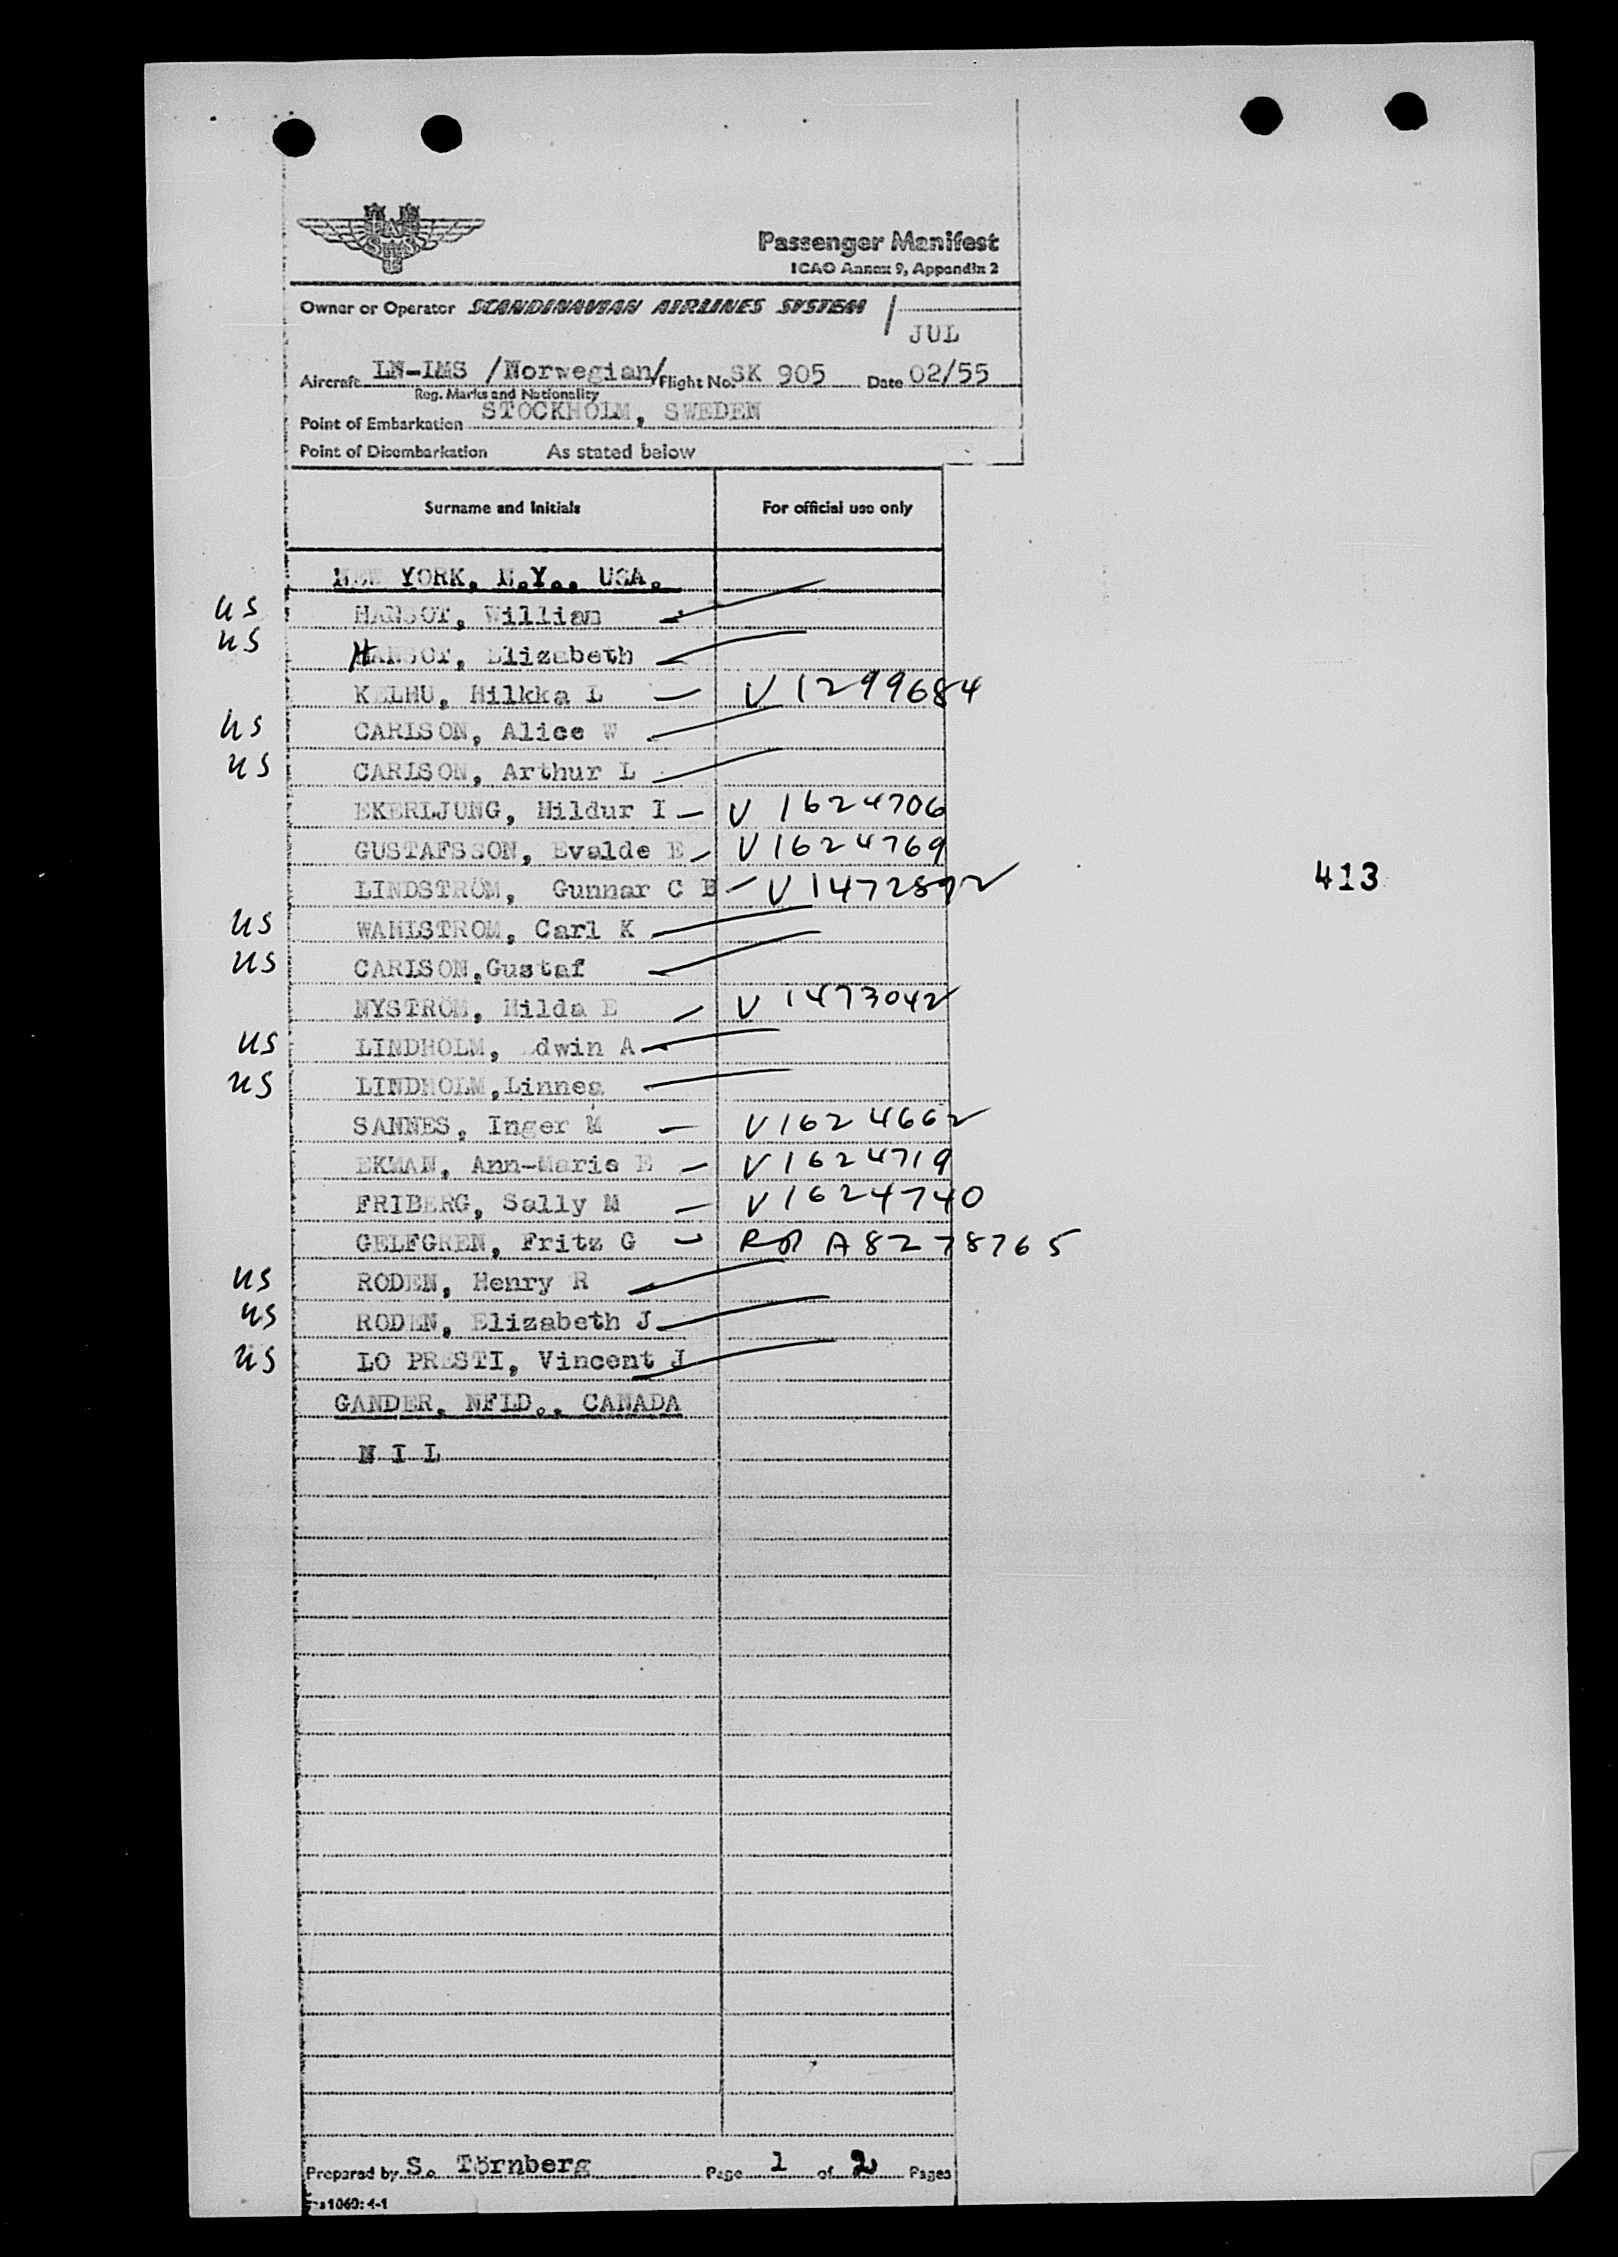 SAS
Passenger Manifest
ICAO Annex 9, Appendix 2
Owner or Operator SCANDINAVIAN AIRLINES SYSTEM /
JUL
Aircraft LN-LMS /Norwegian/ Flight No. SK 905 Date 02/55
Reg. Marks and Nationality
Point of Embarkation STOCKHOLM, SWEDEN
Point of Disembarkation As stated below
Surname and Initials For official use only
NEW YORK, N.Y., USA.
US HANSOT, William
US HANSOT, Elizabeth
KELHU, Hilkka L — V1299684
US CARLSON, Alice W
US CARLSON, Arthur L
EKERLJUNG, Hildur I — V 1624706
GUSTAFSSON, Evalde E — V1624769
LINDSTRÖM, Gunnar C E — V1472892
413
US WAHLSTROM, Carl K
US CARLSON,Gustaf
NYSTRÖM, Hilda E — V 1473042
US LINDHOLM, Edwin A
US LINDHOLM,Linnea
SANNES, Inger M — V1624662
EKMAN, Ann-Marie E — V1624719
FRIBERG, Sally M — V1624740
GELFGREN, Fritz G — A8278765
US RODEN, Henry R
US RODEN, Elizabeth J
US LO PRESTI, Vincent J
GANDER, NFLD., CANADA
N I L
Prepared by S. Törnberg Page 1 of 2 Pages
1060: 4-1